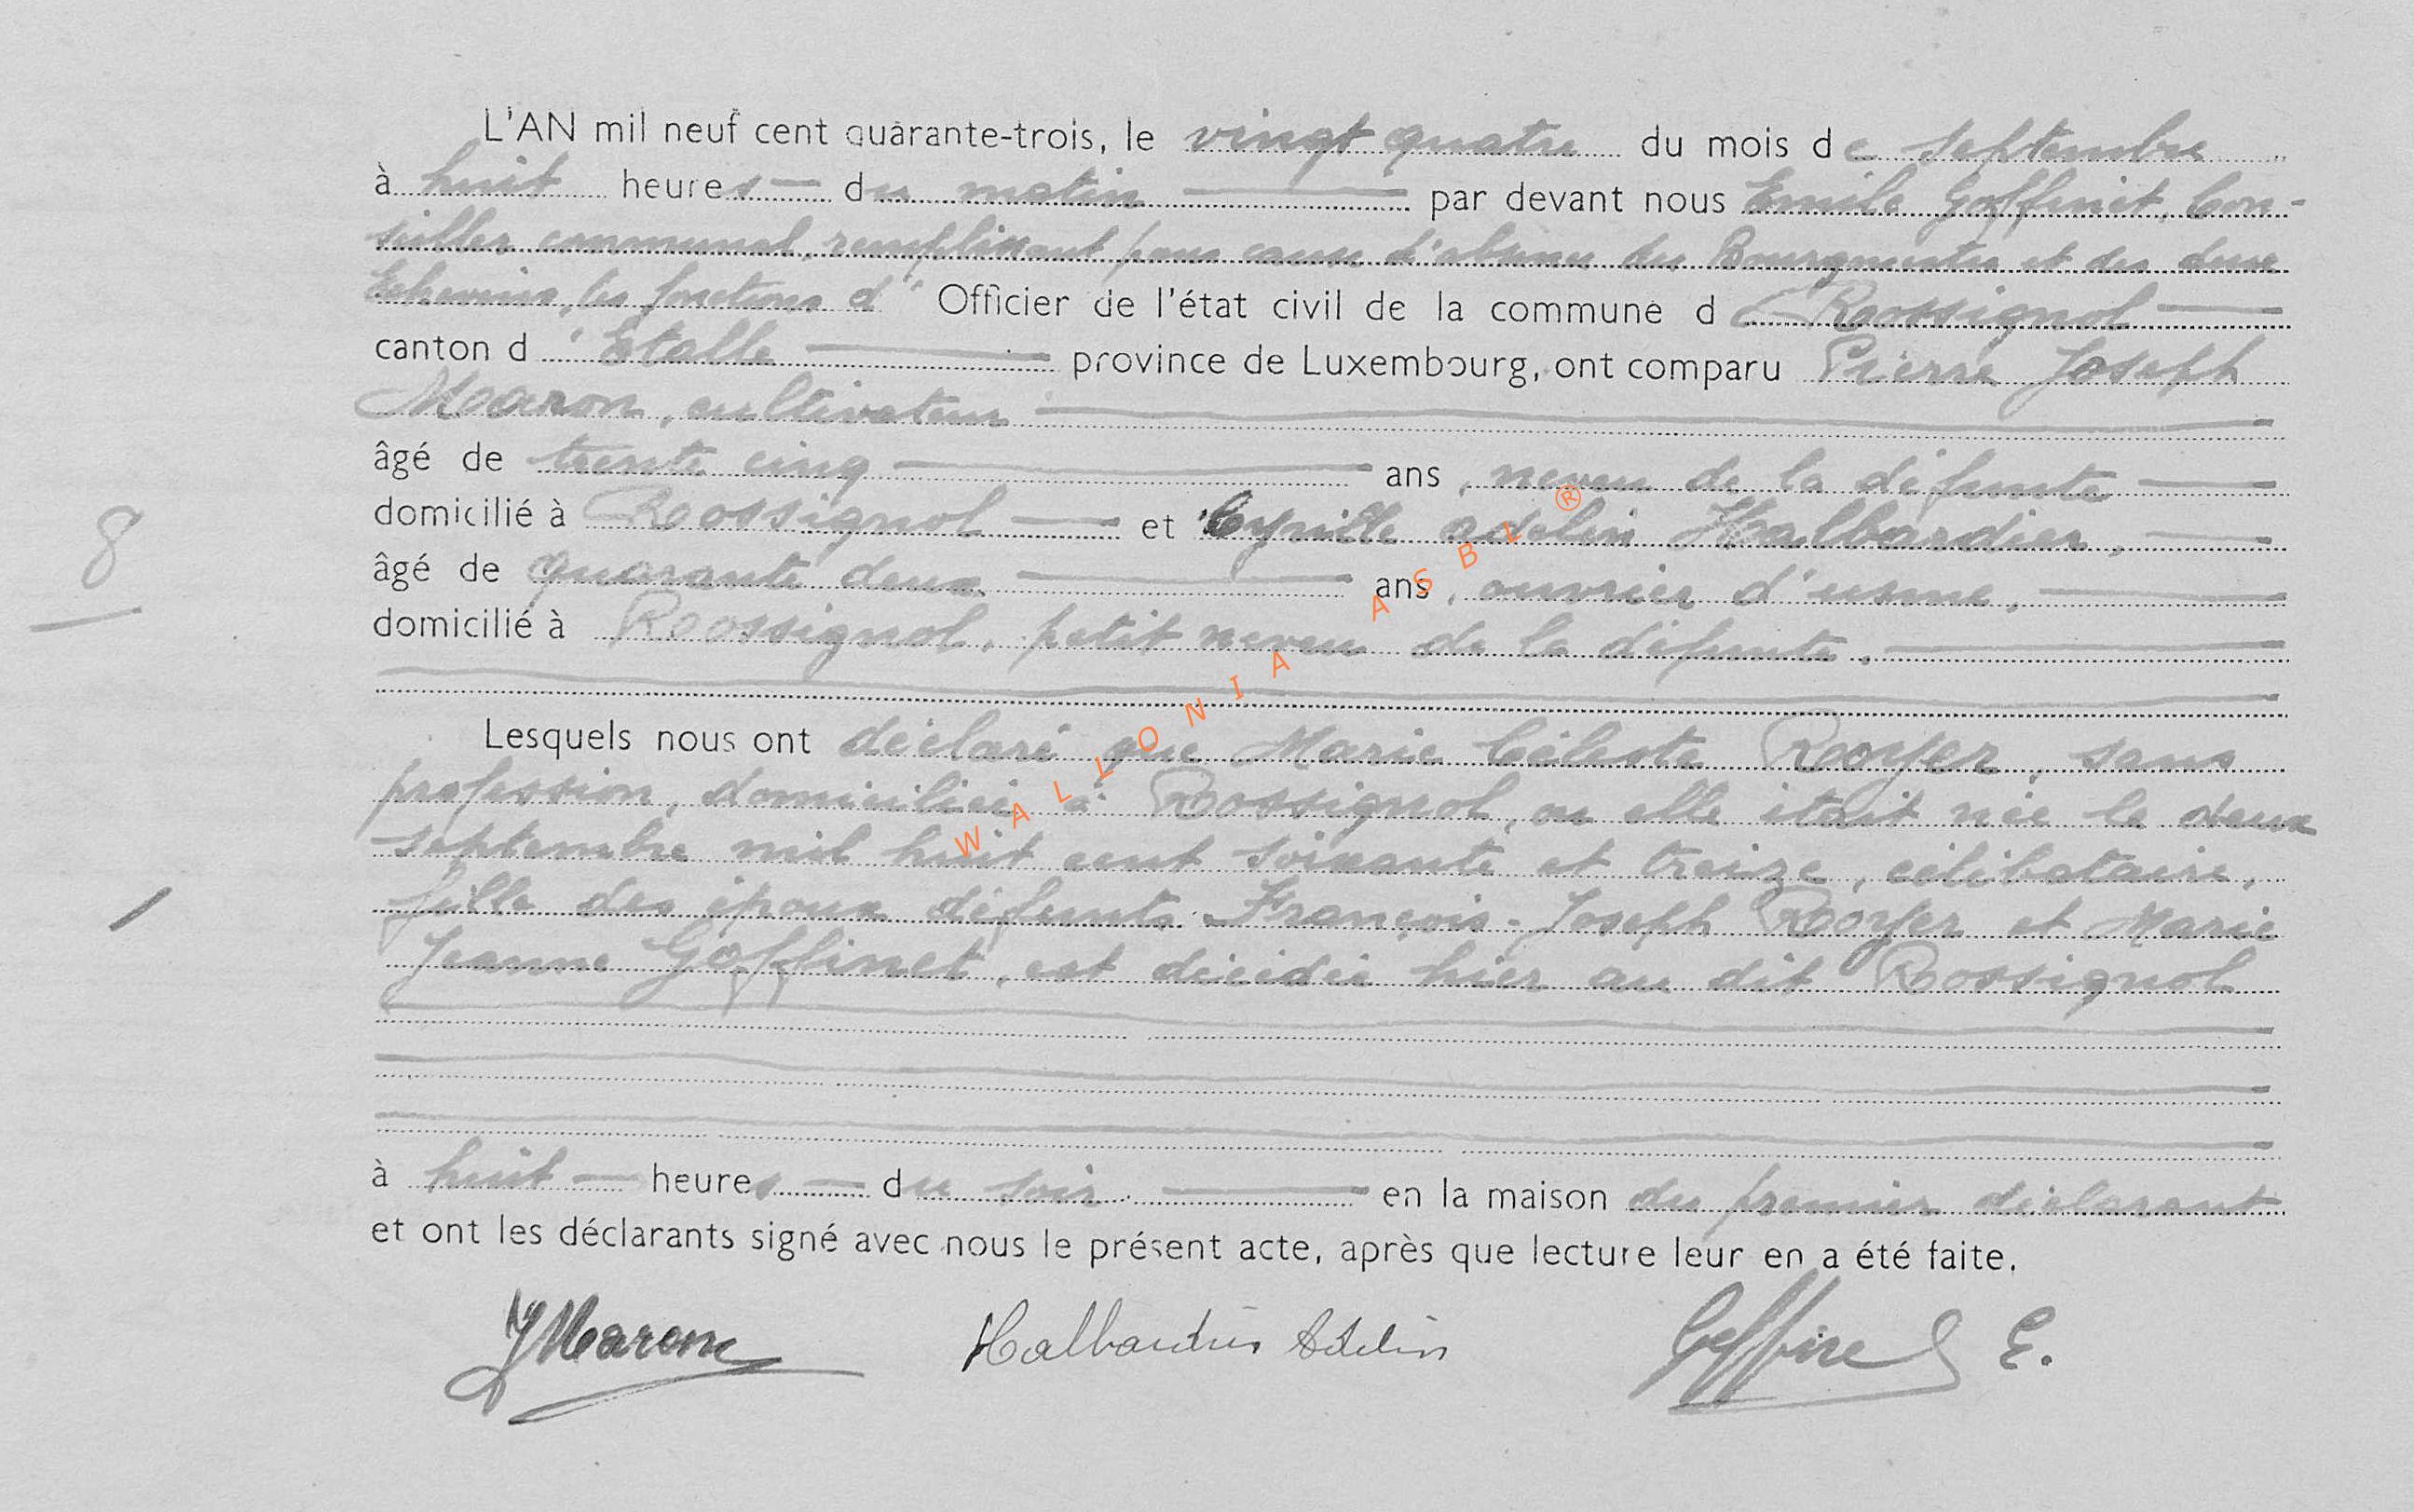 L'AN mil neuf cent quarante-trois, le vingt quatre du mois de septembre
à huit heures du matin par devant nous Emile Goffinet, Con-
seiller communal, remplissant pour cause d'absence du Bourgmestre et des deux
Echevins, les fonctions d' Officier de l'état civil de la commune de Rossignol
canton d'Etalle province de Luxembourg, ont comparu Pierre Joseph
Maron, cultivateur
âgé de trente cinq ans, neveu de la défunte
domicilié à Rossignol et Cyrille Adelin Halbardier,
âgé de quarante deux ans, ouvrier d'usine,
domicilié à Rossignol, petit neveu de la défunte.
8
Lesquels nous ont déclaré que Marie Céleste Royer, sans
profession, domiciliée à Rossignol, ou elle était née le deux
septembre mil huit cent soixante et treize, célibataire,
fille des époux défunts François-Joseph Royer et Marie
Jeanne Goffinet, est décédée hier au dit Rossignol
à huit heures du soir en la maison du premier déclarant
et ont les déclarants signé avec nous le présent acte, après que lecture leur en a été faite.
J Maron Halbardier Adelin Goffinet E.
WALLONIA ASBL ®